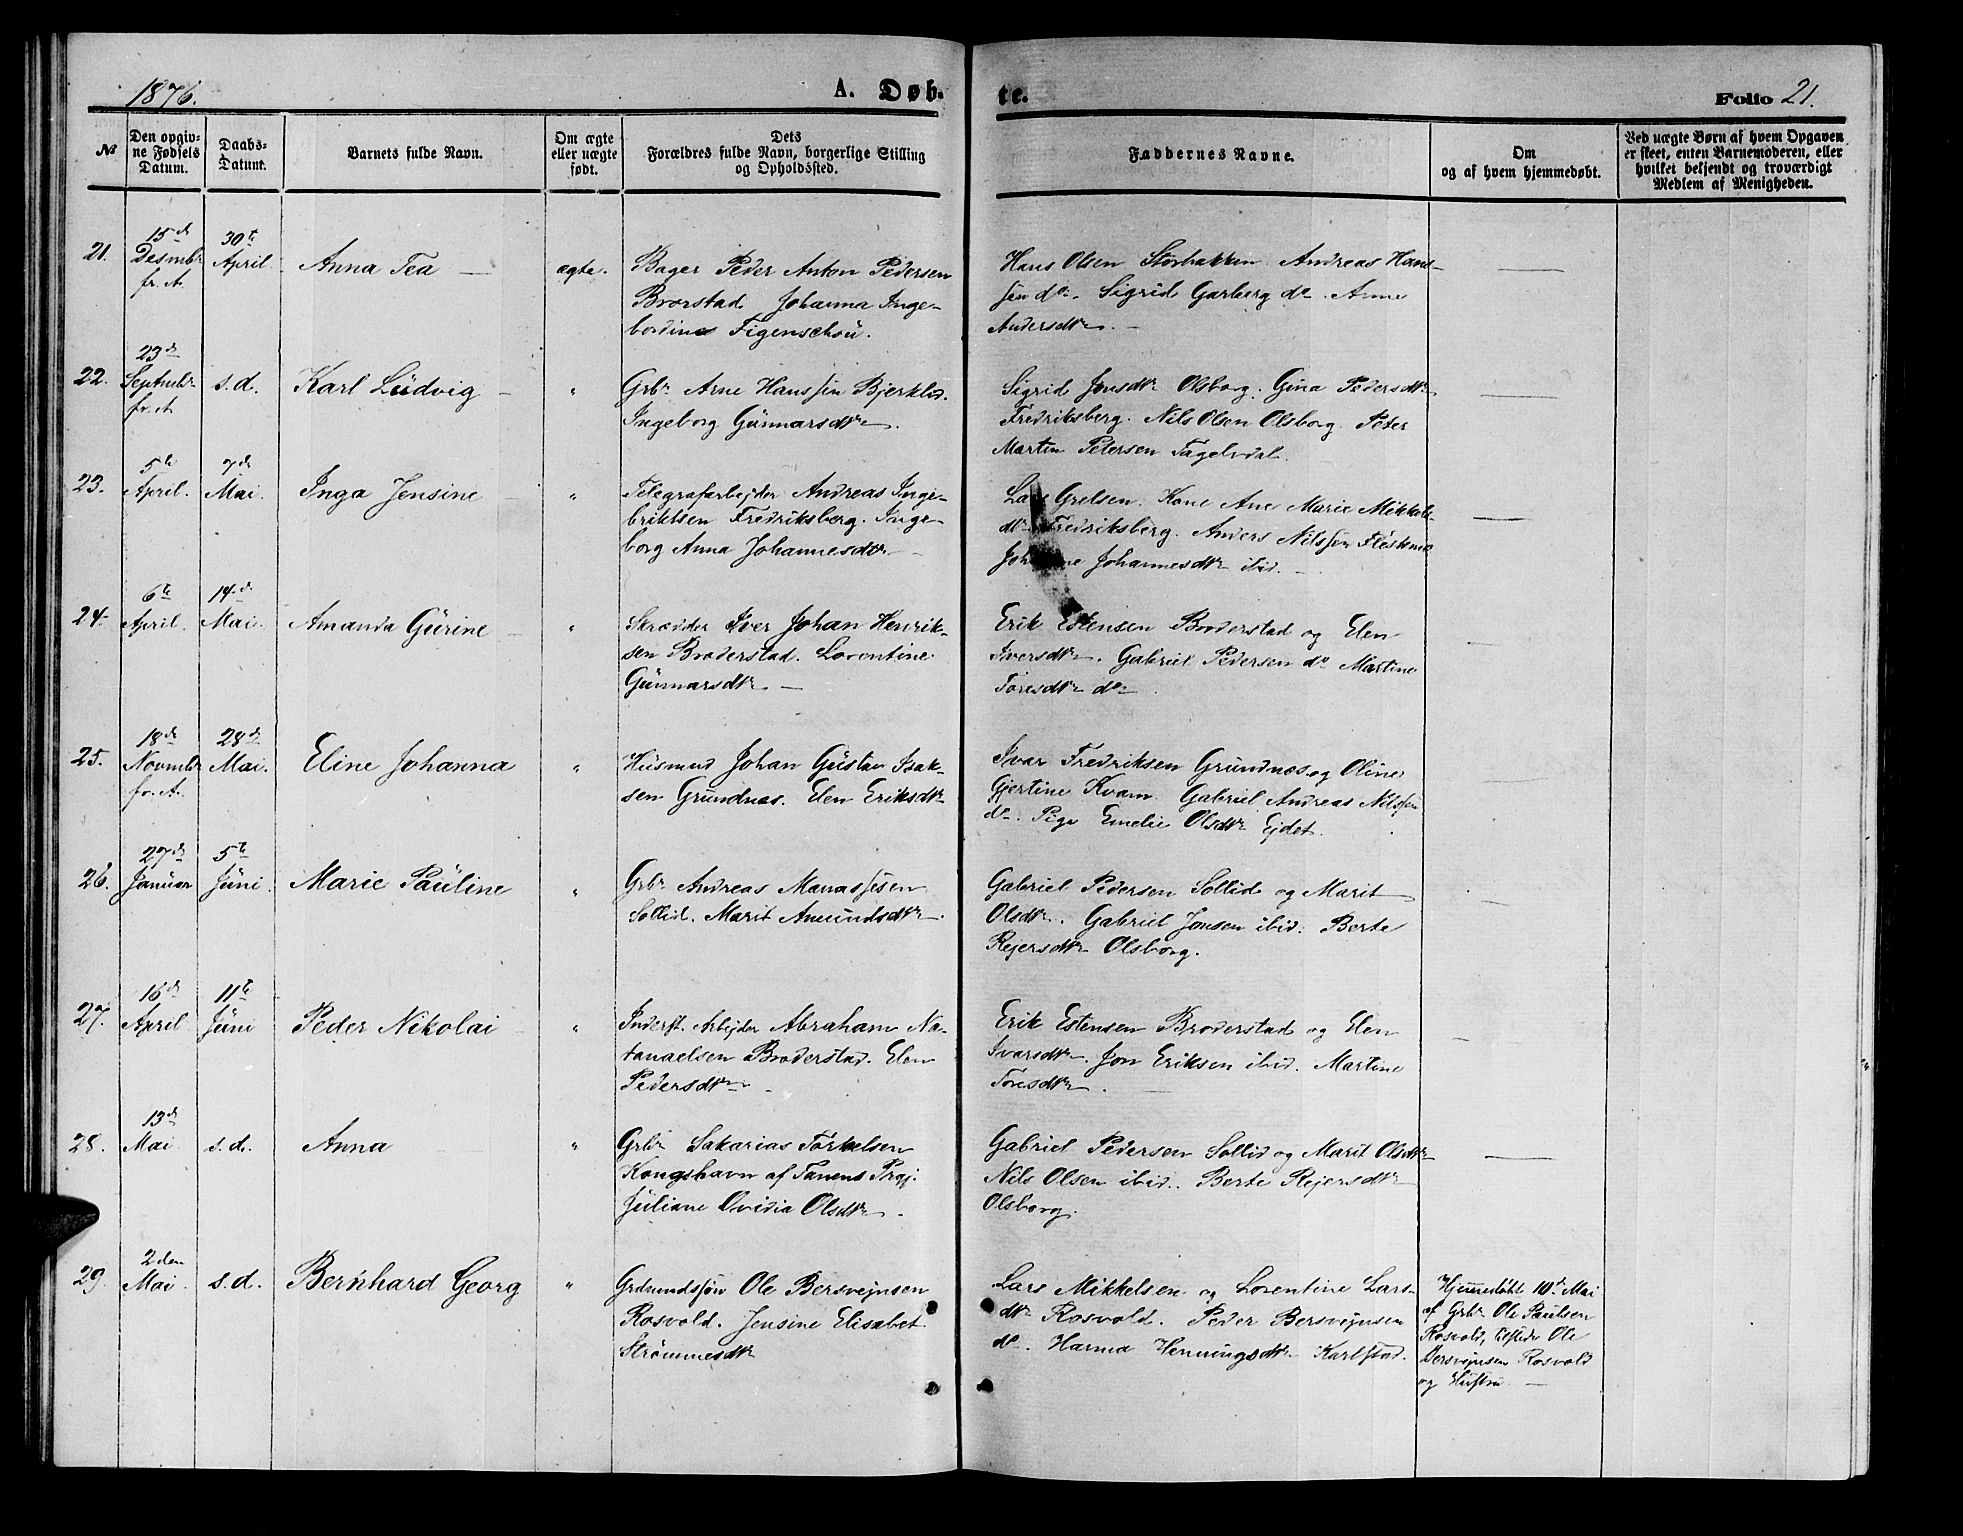 1876.
A. Døb-
te.
Folio 21.
№
Den opgiv-
ne Fødsels
Datum.
Daabs-
Datum.
Barnets fulde Navn.
Om ægte
eller uægte
født.
Dets
Forældres fulde Navn, borgerlige Stilling
og Opholdssted.
Faddernes Navne.
Om
og af hvem hjemmedøbt.
Ved uægte Børn af hvem Opgaven
er skeet, enten Barnemoderen, eller
hvilket bekjendt og troværdigt
Medlem af Menigheden.
21.
15de
Desmbr
fr. A.
30te
April
Anna Tea —
ægte.
Bager Peder Anton Pedersen
Brorstad Johanna Inge-
bordine Figenschoü.
Hans Olsen Storbakken Andreas Hans-
sen do. Sigrid Garberg do. Anne
Andersdtr. —
—
22.
23de
Septmbr
fr. A
s.d.
Karl Lüdvig —
"
Grbr Arne Hanssen Bjerklid.
Ingeborg Günnarsdtr.
Sigrid Jonsdtr Olsborg. Gina Pedersdtr
Fredriksberg. Nils Olsen Olsborg. Peter
Martin Petersen Fagelvdal.
—
23.
5te
April.
7de
Mai.
Inga Jensine —
"
Telegrafarbejder Andreas Inge-
briktsen Fredriksberg. Inge-
borg Anna Johannesdtr —
Lars Grelsen. Kone Ane Marie Mikkels-
dtr Fredriksberg. Anders Nilssen Fleskmo
Johannesdtr ibid. —
—
24.
6te
April.
14de
Mai.
Amanda Gürine —
"
Skrædder Iver Johan Henrik-
sen Broderstad. Lorentine
Günnarsdtr —
Erik Estensen Broderstad og Elen
Iversdtr. Gabriel Pedersen do Martine
Toresdtr do
—
25.
18de
Novmbr
fr. A.
28de
Mai.
Eline Johanna
"
Hüsmnd Johan Güstav Isak-
sen Gründnæs. Elen Eriksdtr
Ivar Fredriksen Gründnæs og Oline
Gjertine Kvam. Gabriel Andreas Nilssen
do. Pige Emelie Olsdtr Ejdet.
—
26.
27de
Januar
5te
Jüni.
Marie Paüline
"
Grbr Andreas Manassesen
Sollid. Marit Amündsdtr.
Gabriel Pedersen Sollid og Marit
Olsdtr. Gabriel Jonsen ibid. Berte
Rejersdtr Olsborg.
—
27.
16de
April
11te
Jüni
Peder Nikolai
"
Inderst. Arbejder Abraham Na-
tanaelsen Broderstad. Elen
Pedersdtr —
Erik Estensen Broderstad og Elen
Ivarsdtr. Jon Eriksen ibid. Martine
Toresdtr.
—
28.
13de
Mai
s.d.
Anna
"
Grbr Sakarias Torkelsen
Kongshavn af Tanens Prgj.
Jüliane Ovidia Olsdtr.
Gabriel Pedersen Sollid og Marit Olsdtr
Nils Olsen ibid. Berte Rejersdtr
Olsborg.
—
29.
2den
Mai.
s.d.
Bernhard Georg
"
Grdmndssøn Ole Bersvejnsen
Rosvold. Jensine Elisabet
Strømmesdtr
Lars Mikkelsen og Lorentine Lars-
dtr Rosvold. Peder Bersvejnsen
do. Hanna Henningsdtr Karlstad.
Hjemmedøbt 10de Mai
af Grbr Ole Paulsen
Rosvold, tilstede Ole
Bersvejnsen Rosvold
og Hustru —